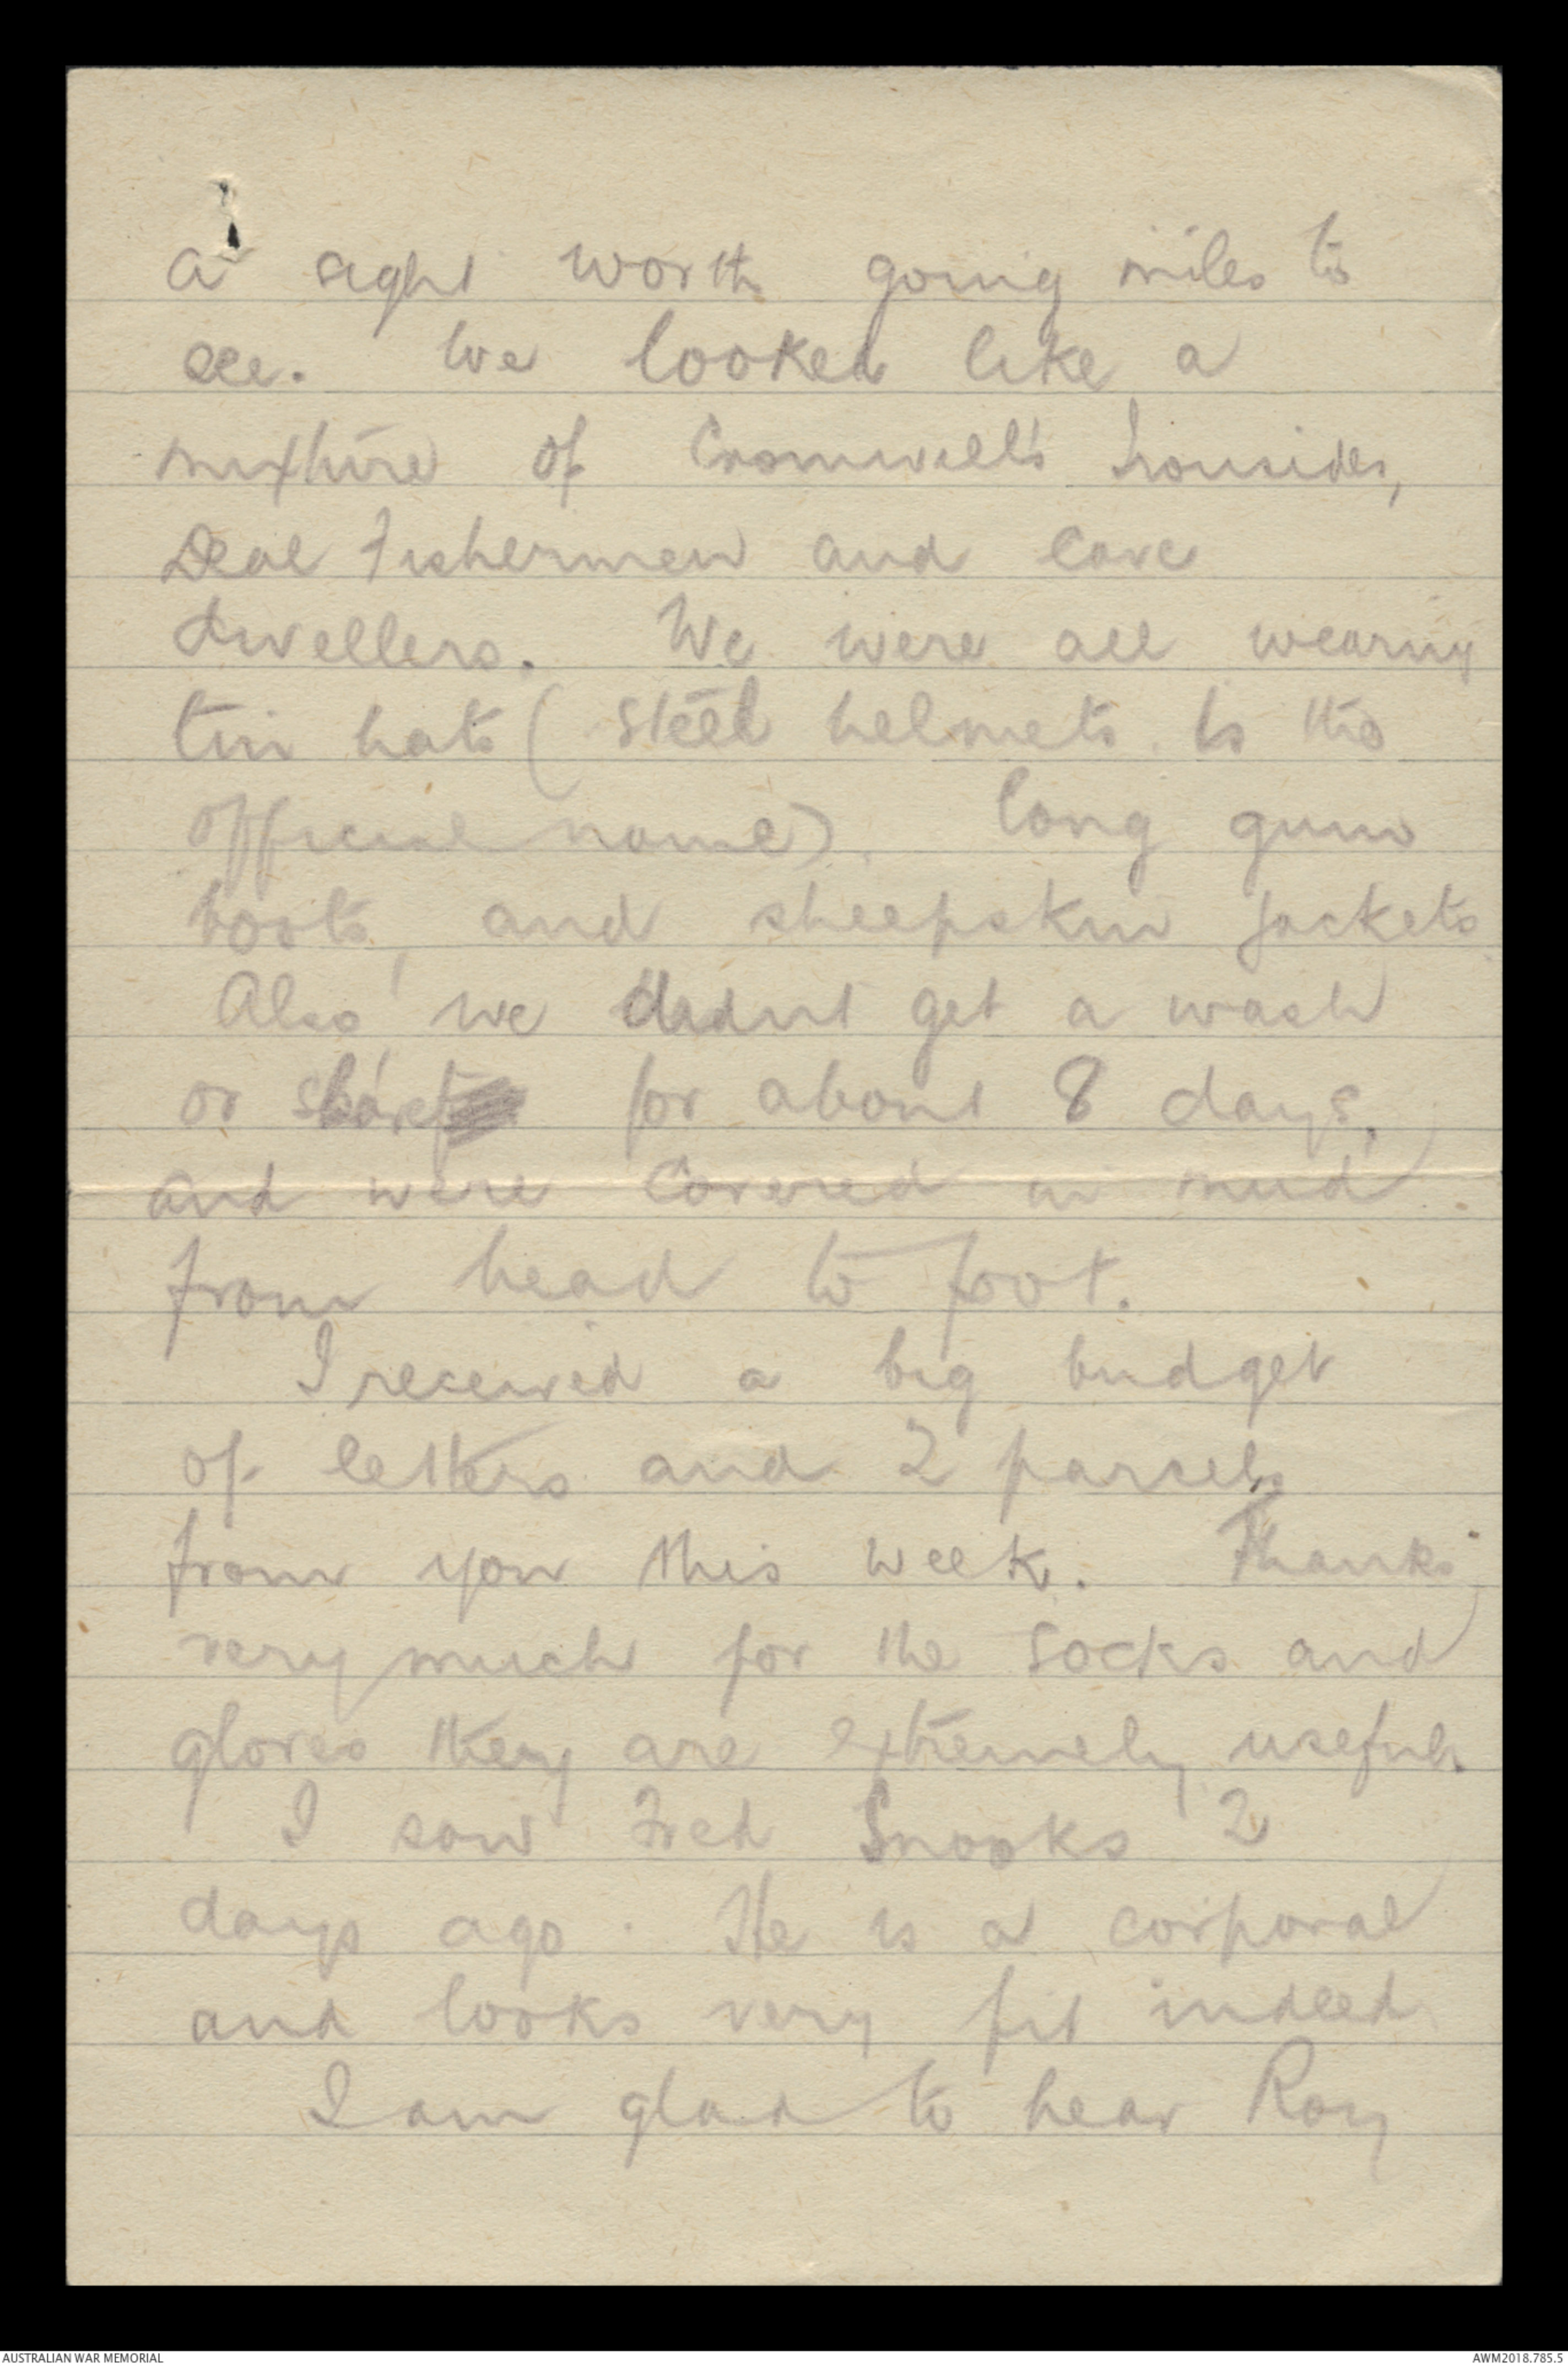 a sight worth going miles to
see. We looked like a
mixture of Cromwell's Ironsides,
Deal Fishermen and cave
dwellers. We were all wearing
tin hats (steel helmets is the
official name). long gum
boots, and sheepskin jackets
Also, we didnt get a wash
or for about 8 days,
and were covered in mud
from head to foot.
I received a big budget
of letters and 2 parcels
from you this week. Thanks
very much for the socks and
gloves they are extremely useful.
I saw Fred Snooks 2
days ago. He is a corporal
and looks very fit indeed
I am glad to hear Roy
AUSTRALIAN WAR MEMORIAL
AWM2018.785.5